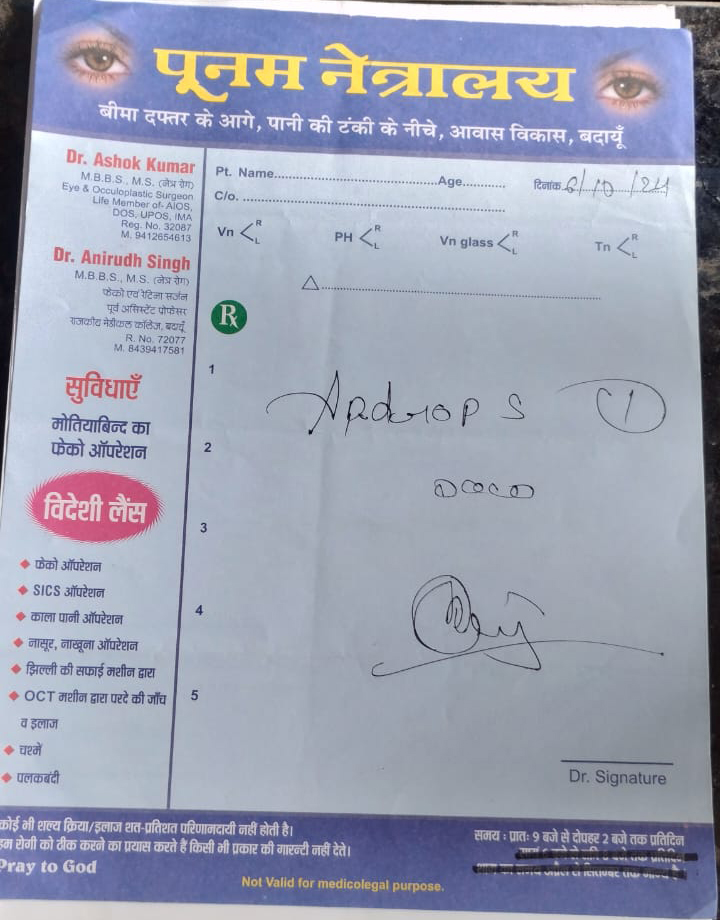 पूनम नेत्रालय
बीमा दफ्तर के आगे, पानी की टंकी के नीचे, आवास विकास, बदायूँ
Dr. Ashok Kumar
M.B.B.S., M.S. (नेत्र रोग)
Eye & Occuloplastic Surgeon
Life Member of- AIOS,
DOS, UPOS, IMA
Reg. No. 32087
M. 9412654613
Dr. Anirudh Singh
M.B.B.S., M.S. (नेत्र रोग)
फेको एवं रेटिना सर्जन
पूर्व असिस्टेंट प्रोफेसर
राजकीय मेडीकल कॉलेज, बदायूँ
R. No. 72077
M. 8439417581
सुविधाएँ
मोतियाबिन्द का
फेको ऑपरेशन
विदेशी लैंस
फेको ऑपरेशन
SICS ऑपरेशन
काला पानी ऑपरेशन
नासूर, नाखूना ऑपरेशन
झिल्ली की सफाई मशीन द्वारा
OCT मशीन द्वारा परदे की जाँच
व इलाज
चश्में
पलकबंदी
Pt. Name Age दिनांक 6/10/24
C/o.
Vn R L PH R L Vn glass R L Tn R L
Rx
1
Apdrops 1
2
3
4
5
Dr. Signature
कोई भी शल्य क्रिया/इलाज शत-प्रतिशत परिणामदायी नहीं होती है।
हम रोगी को ठीक करने का प्रयास करते हैं किसी भी प्रकार की गारन्टी नहीं देते।
Pray to God
समय : प्रातः 9 बजे से दोपहर 2 बजे तक प्रतिदिन
Not Valid for medicolegal purpose.